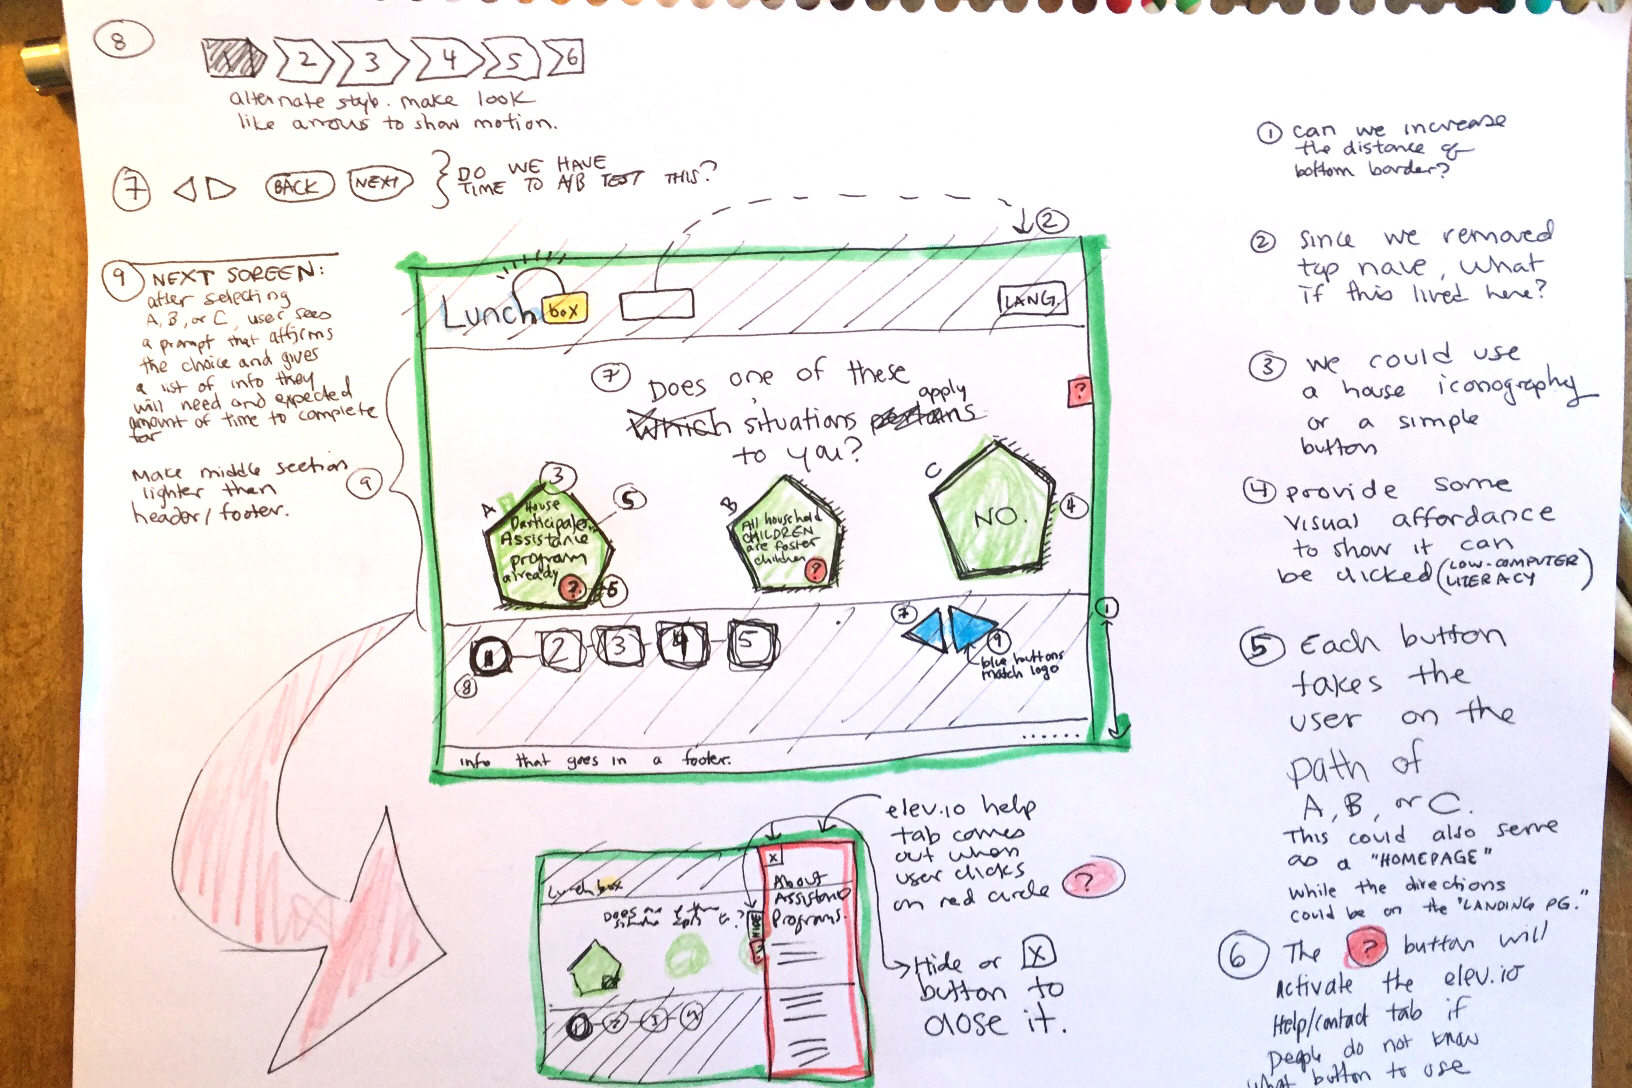 8
1 2 3 4 5 6
alternate style. make look
like arrows to show motion.
7 BACK NEXT DO WE HAVE
TIME TO A/B TEST THIS?
9 NEXT SCREEN:
after selecting
A, B, or C, user sees
a prompt that affirms
the choice and gives
a list of info they
will need and expected
amount of time to complete
for
Make middle section
lighter than
header/footer.
9
2
Lunch box
LANG.
7 Does one of these
apply
Which situations pertains
to you?
?
A
3
House
Participates
Assistance
program
already
?
5
6
B
All household
CHILDREN
are foster
children
?
C
NO.
4
1 2 3 4 5
8
7
9
blue buttons
match logo
1
info that goes in a footer.
Lunch box
?
HIDE
?
x
About
Assistance
Programs.
1 2 3 4
elev.io help
tab comes
out when
user clicks
on red circle ?
Hide or X
button to
close it.
1 can we increase
the distance of
bottom border?
2 Since we removed
top nave, what
if this lived here?
3 we could use
a house iconography
or a simple
button
4 provide some
visual affordance
to show it can
be clicked (LOW-COMPUTER
LITERACY)
5 Each button
takes the
user on the
path of
A, B, or C.
This could also serve
as a "HOMEPAGE"
while the directions
could be on the "LANDING PG."
6 The ? button will
Activate the elev.io
Help/contact tab if
people do not know
what button to use